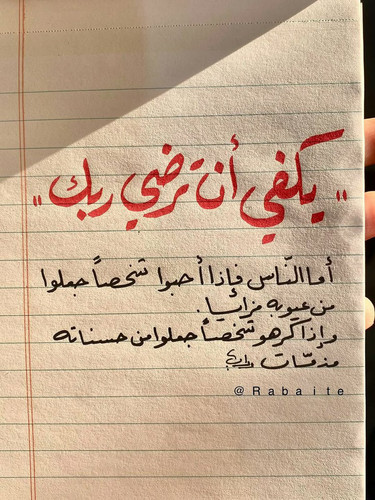 " يكفي أن ترضي ربك "
أما النّاس فإذا أحبوا شخصاً جعلوا
من عيوبه مزايا.
وإذا كرهو شخصاً جعلوا من حسناته
مذمّات
@Rabaite